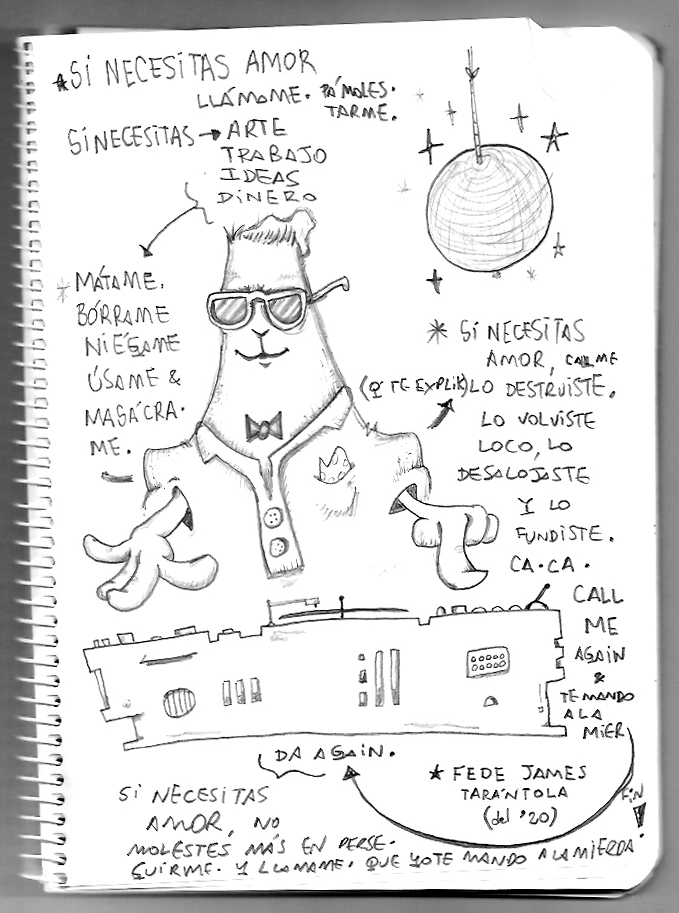 *SI NECESITAS AMOR
LLÁMAME. PA'MOLES.
TARME.
SI NECESITAS → ARTE
TRABAJO
IDEAS
DINERO
* MÁTAME.
BÓRRAME
NIÉGAME
ÚSAME &
MASÁCRA.
ME.
* SI NECESITAS
AMOR, CALL ME
(Q' TE EXPLIK) LO DESTRUISTE.
LO VOLVISTE
LOCO, LO
DESALOJASTE
Y LO
FUNDISTE.
CA.CA.
CALL
ME
AGAIN
&
TE MANDO
A LA
MIER
DA AGAIN.
* FEDE JAMES
TARÁNTOLA
(del '20)
SI NECESITAS
AMOR, NO
MOLESTES MÁS EN PERSE.
GUIRME. Y LLAMAME. QUE YO TE MANDO A LA MIERDA.
FIN